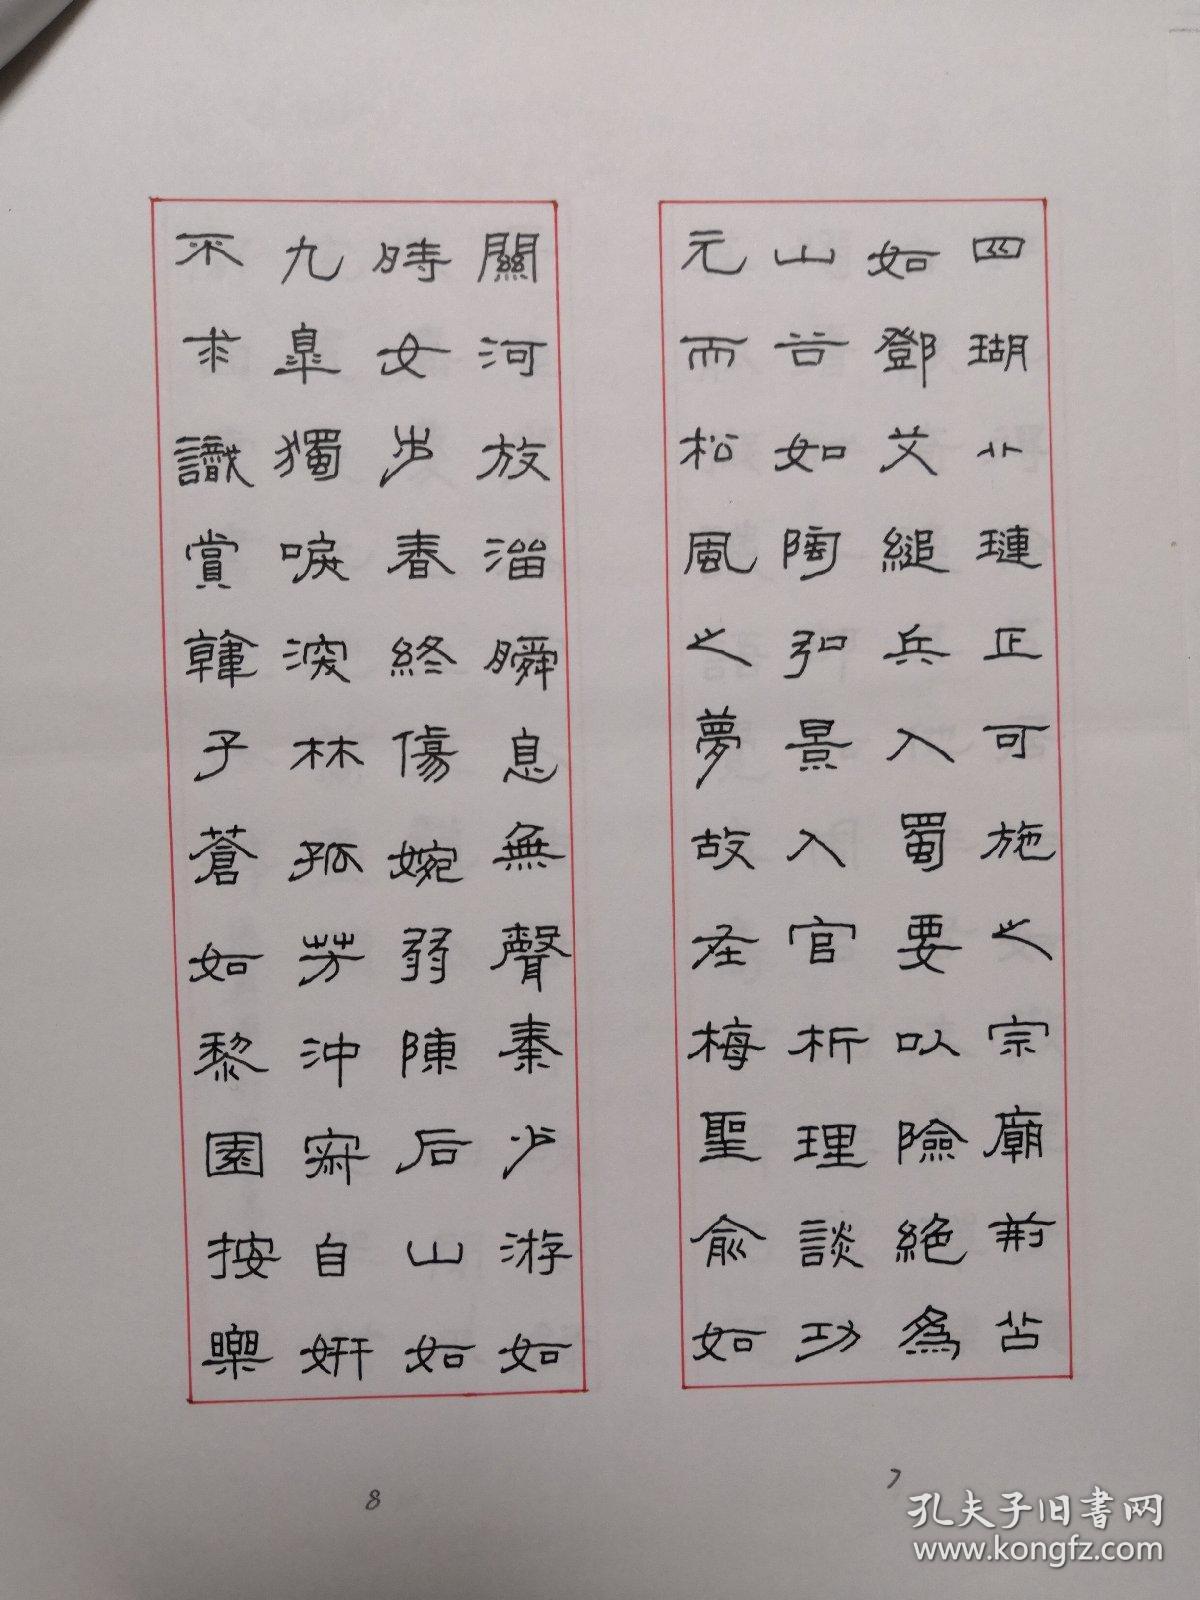 四瑚八璉正可施之宗廟荊公
如鄧艾縋兵入蜀要以險絕為
山谷如陶弘景入官析理談功
元而松風之夢故在梅聖俞如
7
關河放溜瞬息無聲秦少游如
時女步春終傷婉弱陳后山如
九皋獨唳深林孤芳沖寂自妍
不求識賞韓子蒼如黎園按樂
8
孔夫子旧书网
www.kongfz.com